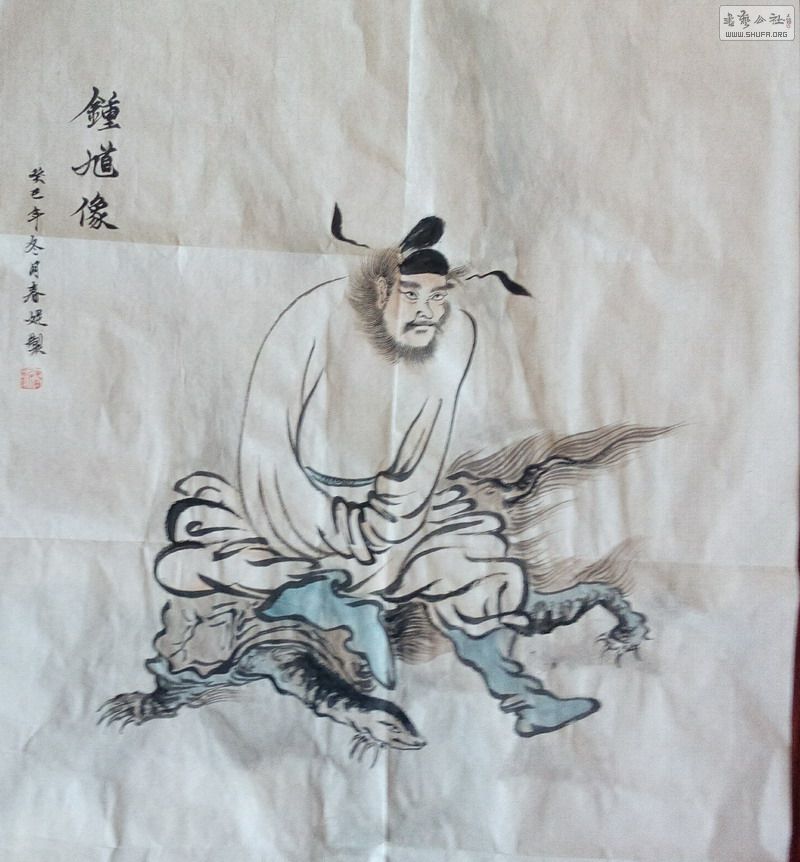 鍾馗像
癸巳年冬月春媞製
书艺公社
WWW.SHUFA.ORG